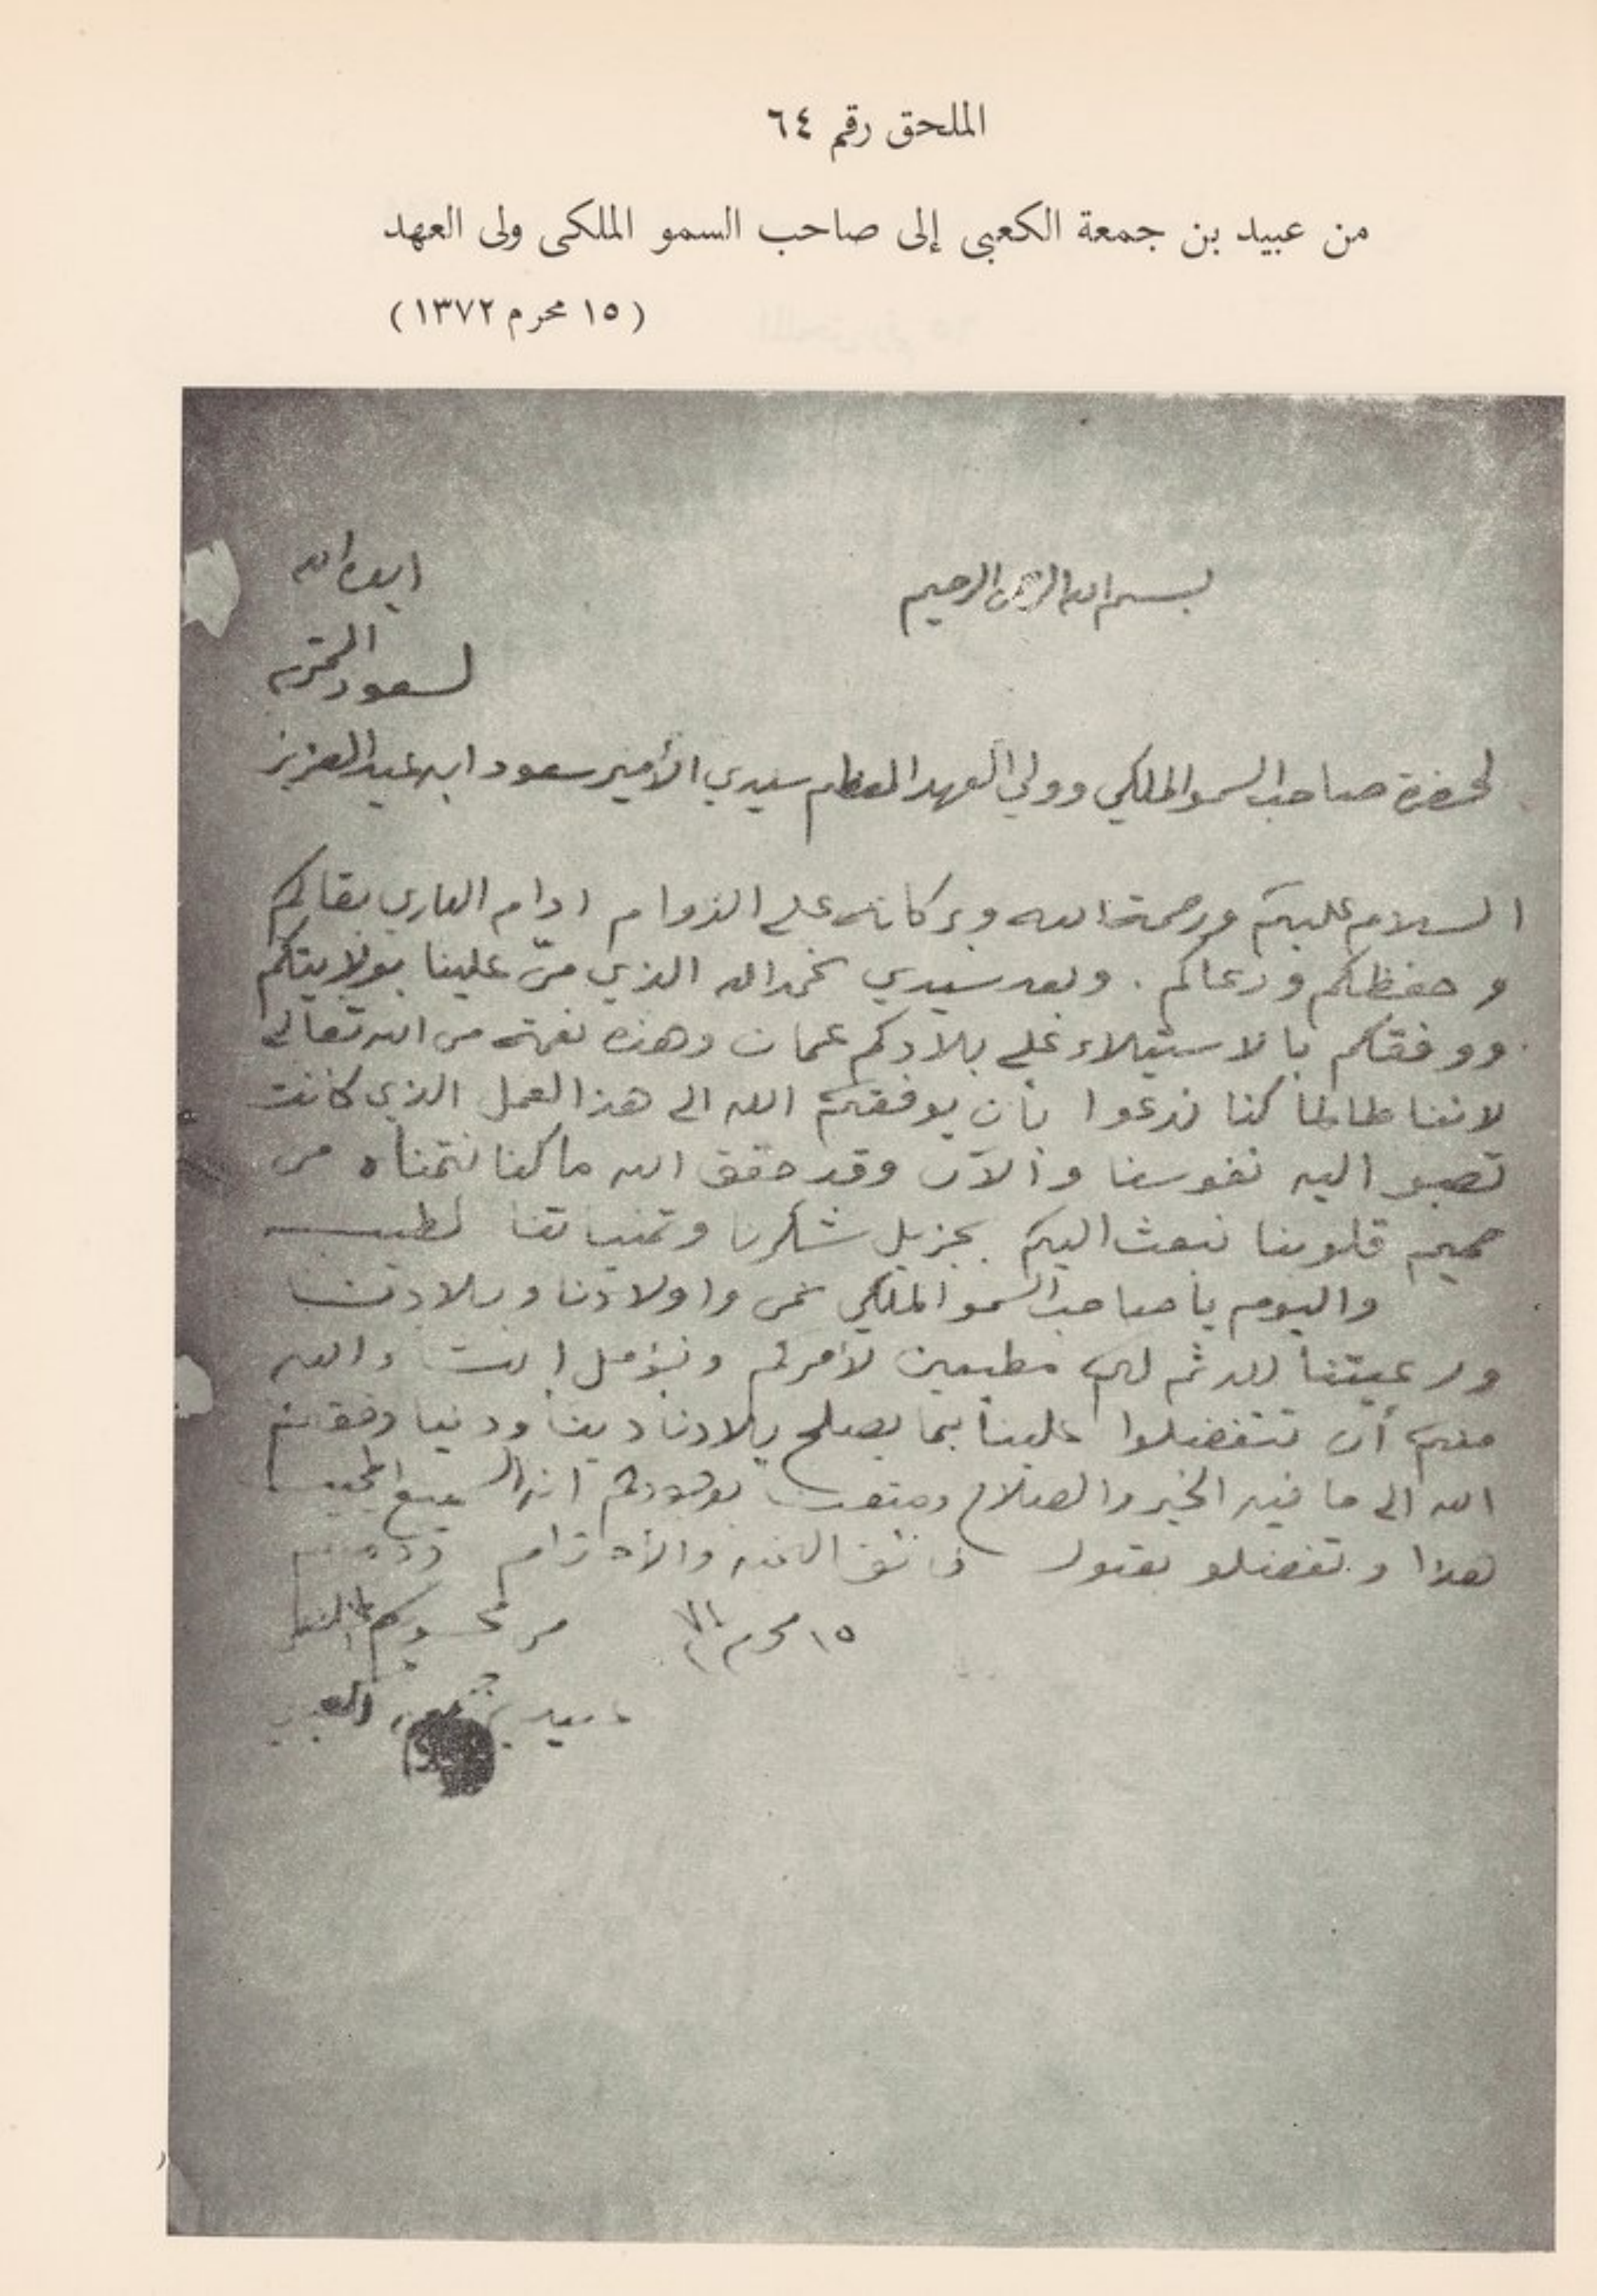 الملحق رقم ٦٤
من عبيد بن جمعة الكعبى إلى صاحب السمو الملكى ولى العهد
( ١٥ محرم ١٣٧٢ )
بسم الله الرحمن الرحيم
ايده الله
لسعود المحترم
لحضرة صاحب السمو الملكي وولي العهد المعظم سيدي الأمير سعود ابن عبد العزيز
السلام عليكم ورحمة الله وبركاته على الدوام ادام الباري بقاكم
و حفظكم ورعاكم . وبعد سيدي نحمد الله الذي منّ علينا بولايتكم
ووفقكم بالاستيلاء على بلادكم عمان وهذه نعمة من الله تعالى
لاننا طالما كنا ندعوا بأن يوفقكم الله الى هذا العمل الذي كانت
تصبو اليه نفوسنا والآن وقد حقق الله ما كنا نتمناه من
صميم قلوبنا نبعث اليكم بجزيل شكرنا وتمنياتنا لطيبه
واليوم يا صاحب السمو الملكي نحن واولادنا وبلادنا
ورعيتنا لكم مطيعين لأمركم ونؤمل والله
منكم أن تتفضلوا علينا بما يصلح بلادنا دينا ودنيا وفقكم
الله الى ما فيه الخير والصلاح ومتعنا بوجودكم انه السميع المجيب
هذا وتفضلو بقبول فائق والأحترام ودمتم
١٥ محرم ٧٢ من محسوبكم
عبيد بن جمعه الكعبي